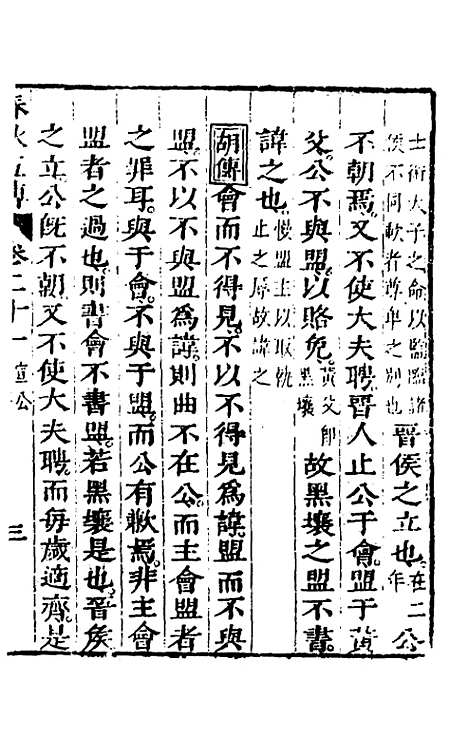 士銜天子之命以監臨諸侯不同歃者尊卑之別也晉侯之立也在二年公
不朝焉又不使大夫聘晉人止公于會盟于黃
父公不與盟以賂免黃父即黑壤故黑壤之盟不書
諱之也慢盟主以取執止之辱故諱之
胡傳會而不得見不以不得見爲諱盟而不與
盟不以不與盟爲諱則曲不在公而主會盟者
之罪耳與于會不與于盟而公有歉焉非主會
盟者之過也則書會不書盟若黑壤是也晉侯
之立公旣不朝又不使大夫聘而每歲適齊是
春秋五傳 卷二十一 宣公 三